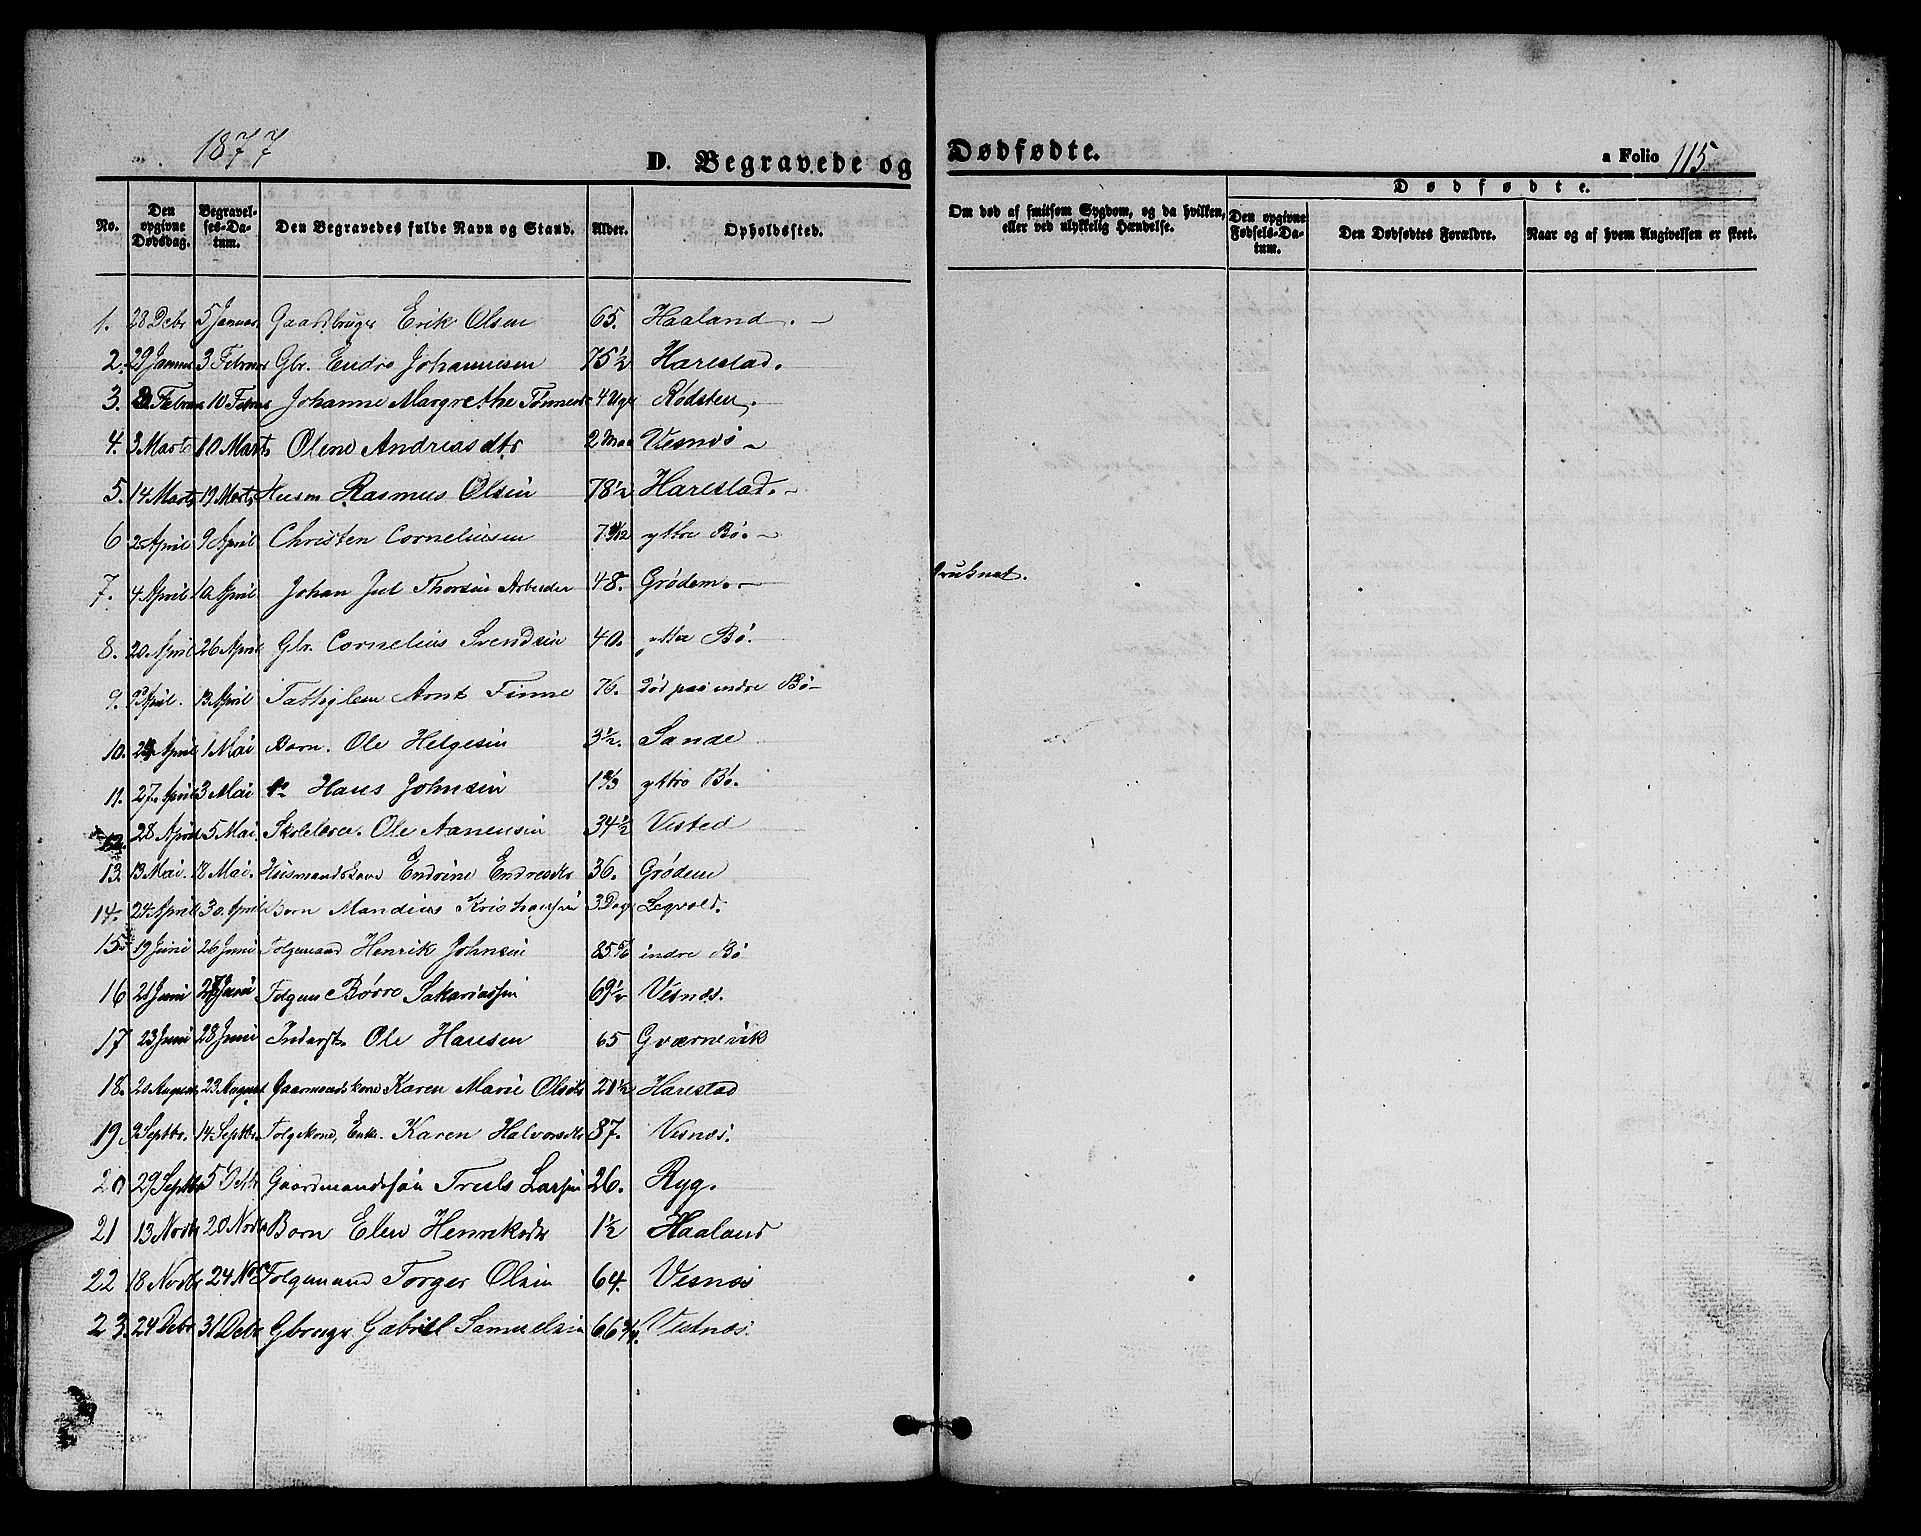 1877
D. Begravede og Dødfødte.
a Folio 115
No.
Den opgivne Dødsdag.
Begravelses-Datum.
Den Begravedes fulde Navn og Stand.
Alder.
Opholdssted.
Om død af smitsom Sygdom, og da hvilken, eller ved ulykkelig Hændelse.
Dødfødte.
Den opgivne Fødsels-Datum.
Den Dødfødtes Forældre.
Naar og af hvem Angivelsen er skeet.
1. 28 Debr 5 Januar Gaardbruger Erik Olsen 65. Haaland. -
2. 29 Januar 3 Februar Gbr. Endre Johannesen 75½ Harestad.
3. Februar 10 Febr Johanne Margrethe Tønnesd 4 Uger Rødsten.
4. 3 Marts 10 Marts Olene Andreasdtr 2 Maa Vesnæs -
5. 14 Marts 19 Marts Husm Rasmus Olsen 78½ Harestad. -
6 2 April 9 April Christen Corneliussen 7 ytre Bø. -
7. 4 April 10 April Johan Jul Thorsen Arbeider 48. Grødem. - druknet.
8. 20 April 26 April Gbr. Cornelius Svendsen 40. ytre Bø.
9. April. 13 April Fattiglem Arnt Finne 76. død paa indre Bø -
10. April 1 Mai Barn. Ole Helgesen 3½. Sande
11. 27. April 3 Mai do Hans Johnsen 1⅔ yttre Bø.
12. 28 April 5 Mai. Skolelærer. Ole Aanensen 34½ Visted
13. 13 Mai. 18 Mai. Husmandskone Endrine Endresdtr 36. Grødem
14. 24 April 30. April Barn Mandius Kristiansen 3 Dag Legvold.
15. 19 Juni 26 Juni Folgemand Henrik Johnsen 85 indre Bø
16 21 Juni 27 Juni Folgem Børre Sakariassen 69½ Vesnæs.
17 23 Juni 28 Juni Inderst. Ole Hansen 65 Gværnevik
18. 20 August 23 August Gaarmandskone Karen Marie Olsdtr 21½ Harestad
19. 9 Septbr. 14 Septbr. Folgekone, Enke. Karen Halvorsdtr 87. Vesnæs.
20 29 Septbr 5 Octbr Gaardmandssøn Truls Larsen 26. Ryg.
21 13 Novbr 20 Novbr Barn Elen Henriksdtr 1½ Haaland
22 18 Novbr 24 Nov Folgemand Torger Olsen 64. Vesnæs
23. 24 Debr 31 Debr Gbruger Gabriel Samuelsen 66 Vestnæs.